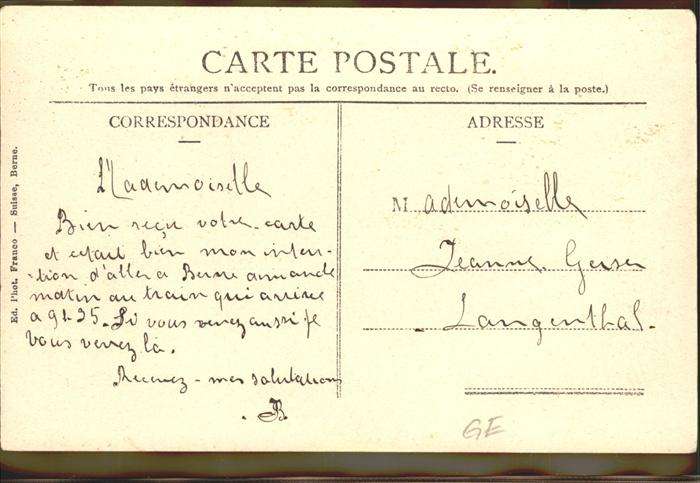 CARTE POSTALE.
Tous les pays étrangers n'acceptent pas la correspondance au recto. (Se renseigner à la poste.)
CORRESPONDANCE
Mademoiselle
Bien reçu votre carte
et cetait bien mon inten-
tion d'aller a Berne dimanche
matin au train qui arrive
a 9h35. Si vous venez aussi je
vous verez là.
Recevez - mes salutations
. B
ADRESSE
Mademoiselle
Jeanne Geiser
Langenthal.
GE
Ed. Phot. Franco — Suisse, Berne.